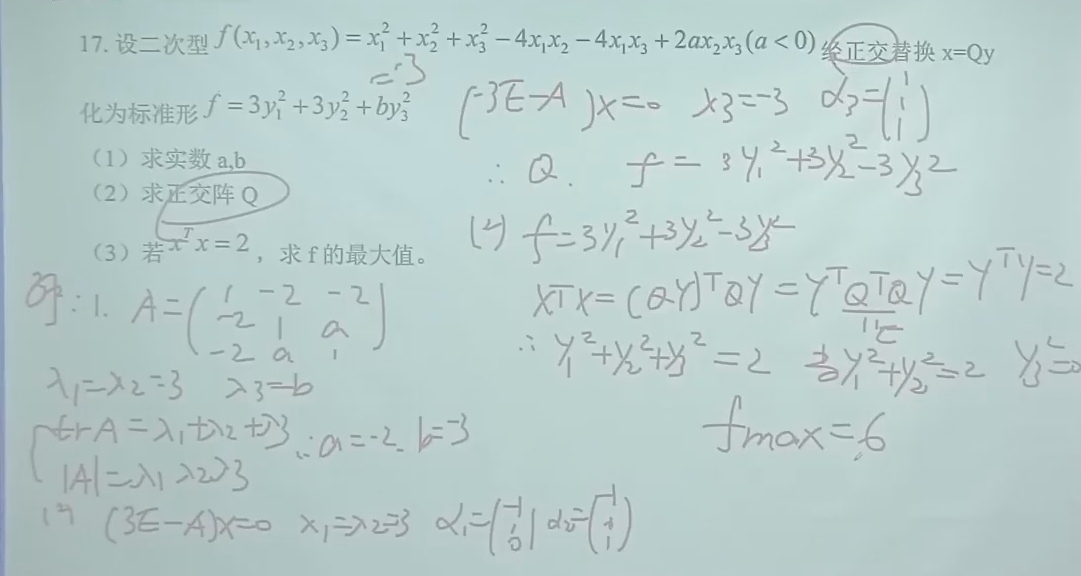 17. 设二次型 f(x₁,x₂,x₃)=x₁²+x₂²+x₃²−4x₁x₂−4x₁x₃+2ax₂x₃(a<0) 经正交替换 x=Qy
=-3
化为标准形 f=3y₁²+3y₂²+by₃²
(1) 求实数 a,b
(2) 求正交阵 Q
(3) 若 xᵀx=2, 求 f 的最大值。
1. A=(1 -2 -2
-2 1 a
-2 a 1)
λ₁=λ₂=3 λ₃=b
{trA=λ₁+λ₂+λ₃ ∴a=-2. b=-3
|A|=λ₁λ₂λ₃
(2) (3E-A)x=0 λ₁=λ₂=3 α₁=(-1 1 0) α₂=
(-3E-A)x=0 λ3=-3 α₃=(1 1 1)
∴ Q. f=3y₁²+3y₂²-3y₃²
f=3y₁²+3y₂²-3y₃²
XᵀX=(QY)ᵀQY=YᵀQᵀQY=YᵀY=2
E
∴ y₁²+y₂²+y₃²=2 y₁²+y₂²=2 y₃²=0
fmax=6